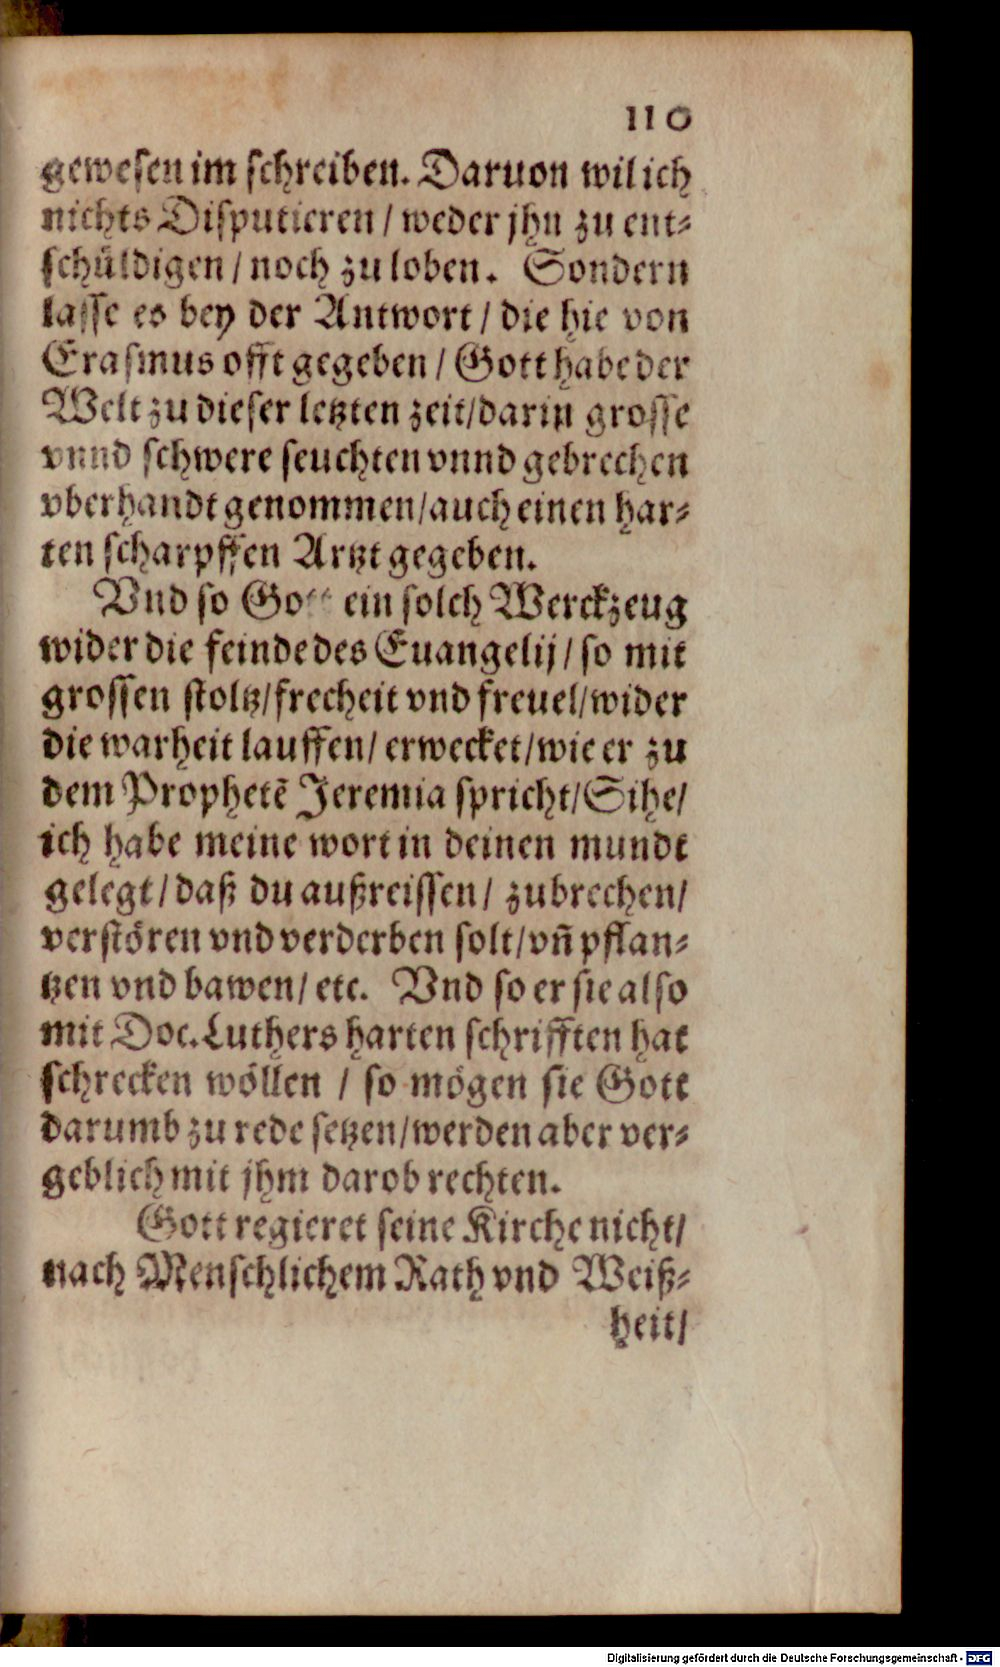 110
gewesen im schreiben. Daruon wil ich
nichts Disputieren / weder jhn zu ent-
schüldigen / noch zu loben. Sondern
lasse es bey der Antwort / die hie von
Erasmus offt gegeben / Gott habe der
Welt zu dieser letzten zeit/darin grosse
vnnd schwere seuchten vnnd gebrechen
vberhandt genommen/auch einen har-
ten scharpffen Artzt gegeben.
Vnd so Gott ein solch Werckzeug
wider die feinde des Euangelij / so mit
grossen stoltz/frecheit vnd freuel/wider
die warheit lauffen/ erwecket/wie er zu
dem Prophetē Jeremia spricht/Sihe/
ich habe meine wort in deinen mundt
gelegt / daß du außreissen / zubrechen/
verstören vnd verderben solt/vñ pflan-
tzen vnd bawen/ etc. Vnd so er sie also
mit Doc. Luthers harten schrifften hat
schrecken wöllen / so mögen sie Gott
darumb zu rede setzen/werden aber ver-
geblich mit jhm darob rechten.
Gott regieret seine Kirche nicht/
nach Menschlichem Rath vnd Weiß-
heit/
Digitalisierung gefördert durch die Deutsche Forschungsgemeinschaft - DFG